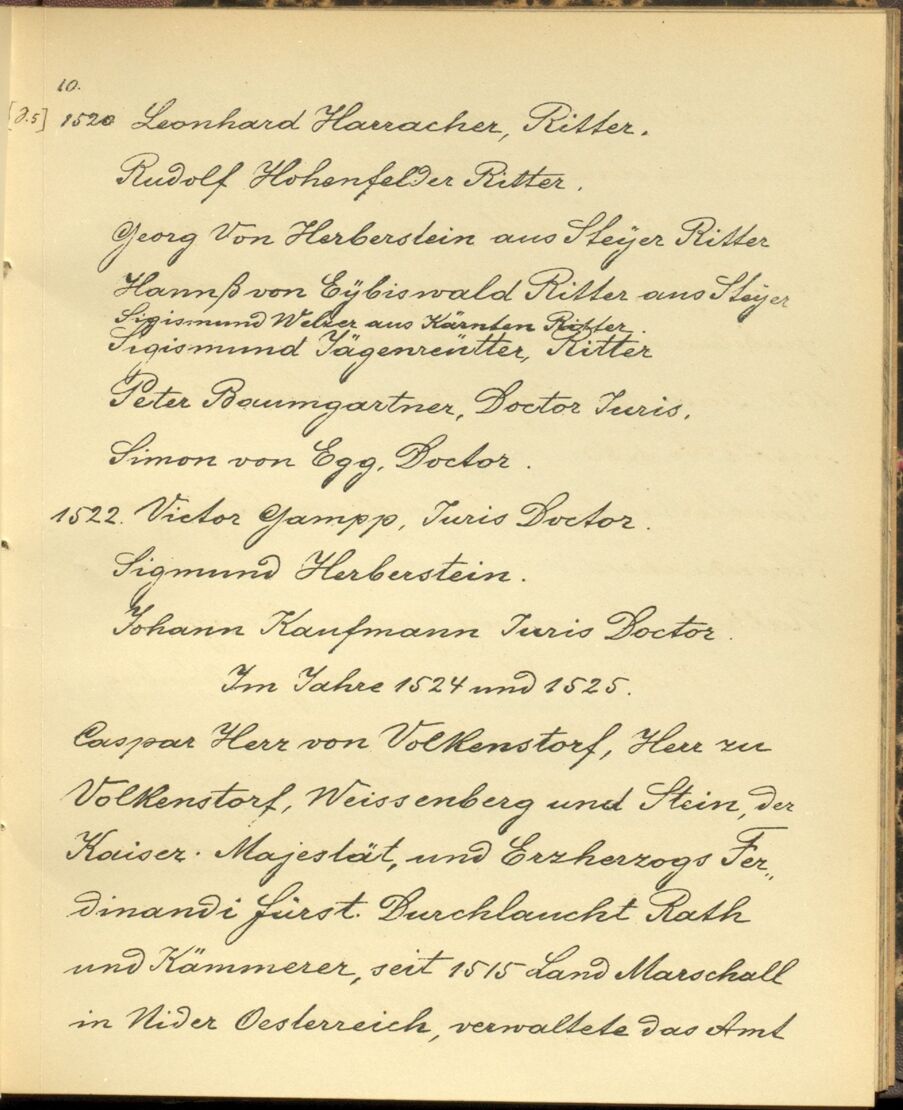 10.
[J.5] 1520 Leonhard Harracher, Ritter.
Rudolf Hohenfelder Ritter.
Georg Von Herberstein aus Steÿer Ritter
Hannß von Eÿbiswald Ritter aus Steÿer
Sigismund Welzer aus Kärnten Ritter.
Sigismund Jägenreütter, Ritter
Peter Baumgartner, Doctor Juris.
Simon von Egg, Doctor.
1522. Victor Gampp, Juris Doctor.
Sigmund Herberstein.
Johann Kaufmann Juris Doctor.
Im Jahre 1524 und 1525.
Caspar Herr von Volkenstorf, Herr zu
Volkenstorf, Weissenberg und Stein, der
Kaiser. Majestät, und Erzherzogs Fer„
dinandi fürst. Durchlaucht Rath
und Kämmerer, seit 1515 Land Marschall
in Nider Oesterreich, verwaltete das Amt